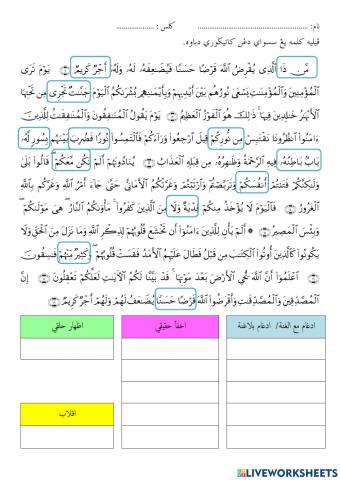 نام: ........................................ كلس : ..................
ڤيليه كلمه يڠ سسواي دڠن كاتيڬوري دباوه.
مَّن ذَا ٱلَّذِى يُقْرِضُ ٱللَّهَ قَرْضًا حَسَنًا فَيُضَٰعِفَهُۥ لَهُۥ وَلَهُۥٓ أَجْرٌ كَرِيمٌ ۝ يَوْمَ تَرَى
ٱلْمُؤْمِنِينَ وَٱلْمُؤْمِنَٰتِ يَسْعَىٰ نُورُهُم بَيْنَ أَيْدِيهِمْ وَبِأَيْمَٰنِهِم بُشْرَىٰكُمُ ٱلْيَوْمَ جَنَّٰتٌ تَجْرِى مِن تَحْتِهَا
ٱلْأَنْهَٰرُ خَٰلِدِينَ فِيهَا ۚ ذَٰلِكَ هُوَ ٱلْفَوْزُ ٱلْعَظِيمُ ۝ يَوْمَ يَقُولُ ٱلْمُنَٰفِقُونَ وَٱلْمُنَٰفِقَٰتُ لِلَّذِينَ
ءَامَنُوا۟ ٱنظُرُونَا نَقْتَبِسْ مِن نُّورِكُمْ قِيلَ ٱرْجِعُوا۟ وَرَآءَكُمْ فَٱلْتَمِسُوا۟ نُورًا فَضُرِبَ بَيْنَهُم بِسُورٍ لَّهُۥ
بَابٌۢ بَاطِنُهُۥ فِيهِ ٱلرَّحْمَةُ وَظَٰهِرُهُۥ مِن قِبَلِهِ ٱلْعَذَابُ ۝ يُنَادُونَهُمْ أَلَمْ نَكُن مَّعَكُمْ ۖ قَالُوا۟ بَلَىٰ
وَلَٰكِنَّكُمْ فَتَنتُمْ أَنفُسَكُمْ وَتَرَبَّصْتُمْ وَٱرْتَبْتُمْ وَغَرَّتْكُمُ ٱلْأَمَانِىُّ حَتَّىٰ جَآءَ أَمْرُ ٱللَّهِ وَغَرَّكُم بِٱللَّهِ
ٱلْغَرُورُ ۝ فَٱلْيَوْمَ لَا يُؤْخَذُ مِنكُمْ فِدْيَةٌ وَلَا مِنَ ٱلَّذِينَ كَفَرُوا۟ ۚ مَأْوَىٰكُمُ ٱلنَّارُ ۖ هِىَ مَوْلَىٰكُمْ ۖ
وَبِئْسَ ٱلْمَصِيرُ ۝ أَلَمْ يَأْنِ لِلَّذِينَ ءَامَنُوٓا۟ أَن تَخْشَعَ قُلُوبُهُمْ لِذِكْرِ ٱللَّهِ وَمَا نَزَلَ مِنَ ٱلْحَقِّ وَلَا
يَكُونُوا۟ كَٱلَّذِينَ أُوتُوا۟ ٱلْكِتَٰبَ مِن قَبْلُ فَطَالَ عَلَيْهِمُ ٱلْأَمَدُ فَقَسَتْ قُلُوبُهُمْ ۖ وَكَثِيرٌ مِّنْهُمْ فَٰسِقُونَ
۝ ٱعْلَمُوٓا۟ أَنَّ ٱللَّهَ يُحْىِ ٱلْأَرْضَ بَعْدَ مَوْتِهَا ۚ قَدْ بَيَّنَّا لَكُمُ ٱلْءَايَٰتِ لَعَلَّكُمْ تَعْقِلُونَ ۝ إِنَّ
ٱلْمُصَّدِّقِينَ وَٱلْمُصَّدِّقَٰتِ وَأَقْرَضُوا۟ ٱللَّهَ قَرْضًا حَسَنًا يُضَٰعَفُ لَهُمْ وَلَهُمْ أَجْرٌ كَرِيمٌ ۝
ادغام مع الغنة/ ادغام بلاغنة
اخفأ حقيقي
اظهار حلقي
اقلاب
LIVEWORKSHEETS